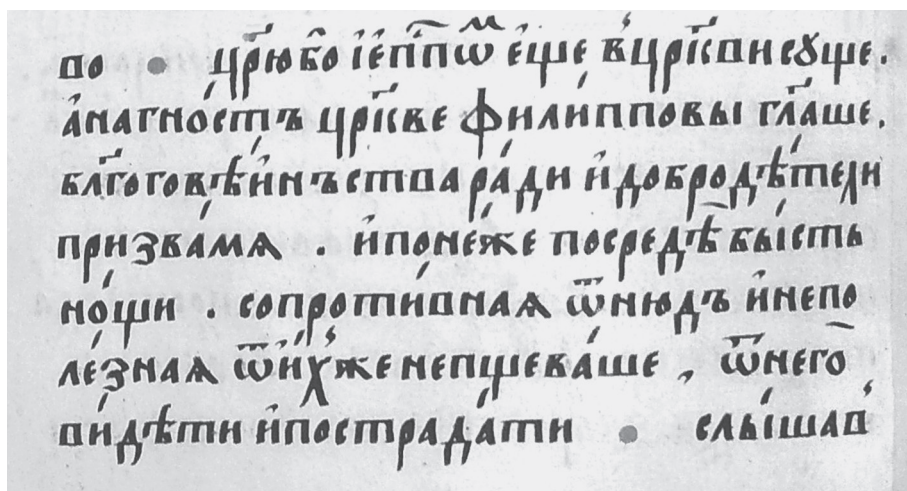 во • цр҃ю бо҃ і҆ е҆пп҃ѡⷨ е҆ще в̾ цр҃кви сꙋще.
а҆нагностъ цр҃кве филипповы гл҃аше.
бл҃гоговѣи҆нъства ра́ди и҆ добродѣтели
призва мѧ . и҆ поне́же посредѣ̀ бы́сть
но́щи . сопроти́внаѧ ѿнюдъ и҆ непо
ле́знаѧ ѿ ни́хже непщева́ше , ѿ него̀
ви́дѣти и҆ пострада́ти • слы́шав̾